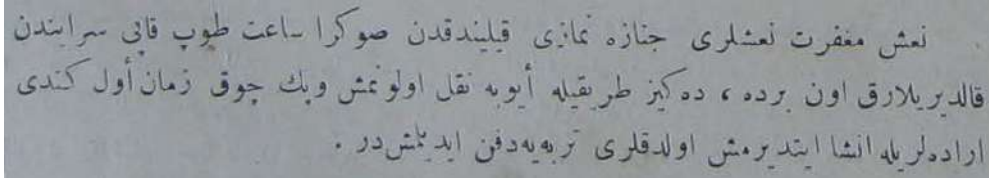 نعش مغفرت نعشلری جنازه نمازی قیلیندقدن صوكرا ساعت طوپ قاپی سرایندن
قالدیریلارق اون برده ، ده كیز طریقیله أیوبه نقل اولونمش وپك چوق زمان أول كندی
اراده لریله انشا ایتدیرمش اولدقلری تربه یه دفن ایدیلمش در .